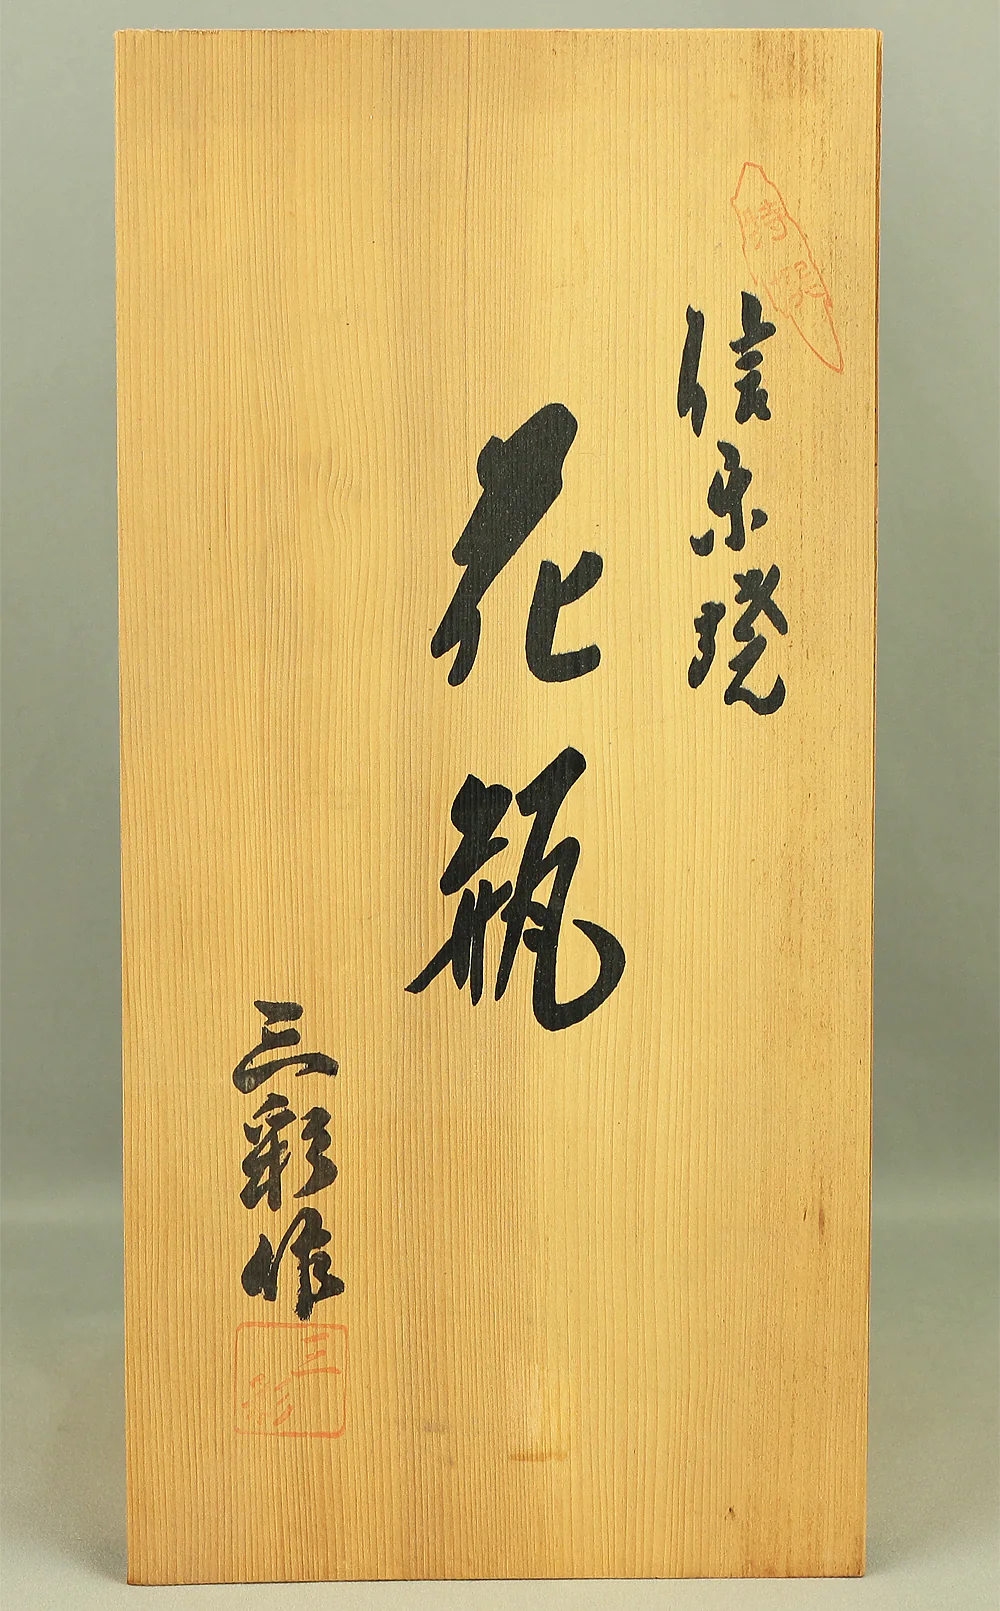 特選
信楽焼
花瓶
三彩作
三彩